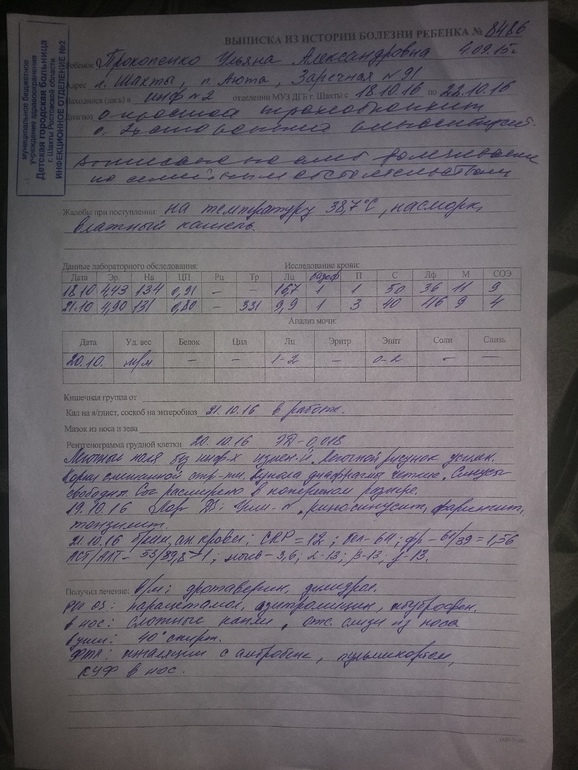 муниципальное бюджетное
учреждение здравоохранения
Детская городская больница
г. Шахты Ростовской области
ИНФЕКЦИОННОЕ ОТДЕЛЕНИЕ №2
ВЫПИСКА ИЗ ИСТОРИИ БОЛЕЗНИ РЕБЕНКА № 8486
Прокопенко Ульяна Александровна 4.09.15г.
Адрес г. Шахты, п. Аюта, Заречная №91
Находился (лась) в инф №2 отделении МУЗ ДГБ г. Шахты с 18.10.16 по 22.10.16
Диагноз о. простой трахеобронхит
Выписана на амб. долечивание
по семейным обстоятельствам
Жалобы при поступлении: на температуру 38,7°С, насморк,
влажный кашель.
Данные лабораторного обследования: Исследование крови:
Дата Эр Нв ЦП Рц Тр Лц П С Лф М СОЭ
18.10 4,43 134 0,91 – – 16,7 1 1 50 36 11 9
21.10 4,90 131 0,80 – 331 9,9 1 3 40 46 9 4
Анализ мочи:
Дата Уд. вес Белок Цил Лц Эритр Эпит Соли Слизь
20.10. м/м – – 1-2 – 0-2 – –
Кишечная группа от
Кал на я/глист, соскоб на энтеробиоз 21.10.16 в работе.
Мазок из носа и зева
Рентгенограмма грудной клетки 20.10.16 ЭД-0,018
Легочные поля без инф-х Легочной рисунок усилен.
Корни смешанной стр-ры. Купола диафрагмы четкие. Синусы
свободны. Cor расширено в поперечном размере.
19.10.16 Лор риносинусит, фарингит,
тонзиллит.
21.10.16 б/хим. ан. крови: СКР = 12;
АСТ/АЛТ – моч-3,6,
Получил лечение: в/м: дротаверин, димедрол.
per os: парацетамол, азитромицин, ибупрофен.
в нос: сложные капли, отс. слизи из носа
в уши: 40° спирт.
ФТЛ: ингаляции с амбробене, пульмикортом,
КУФ в нос.